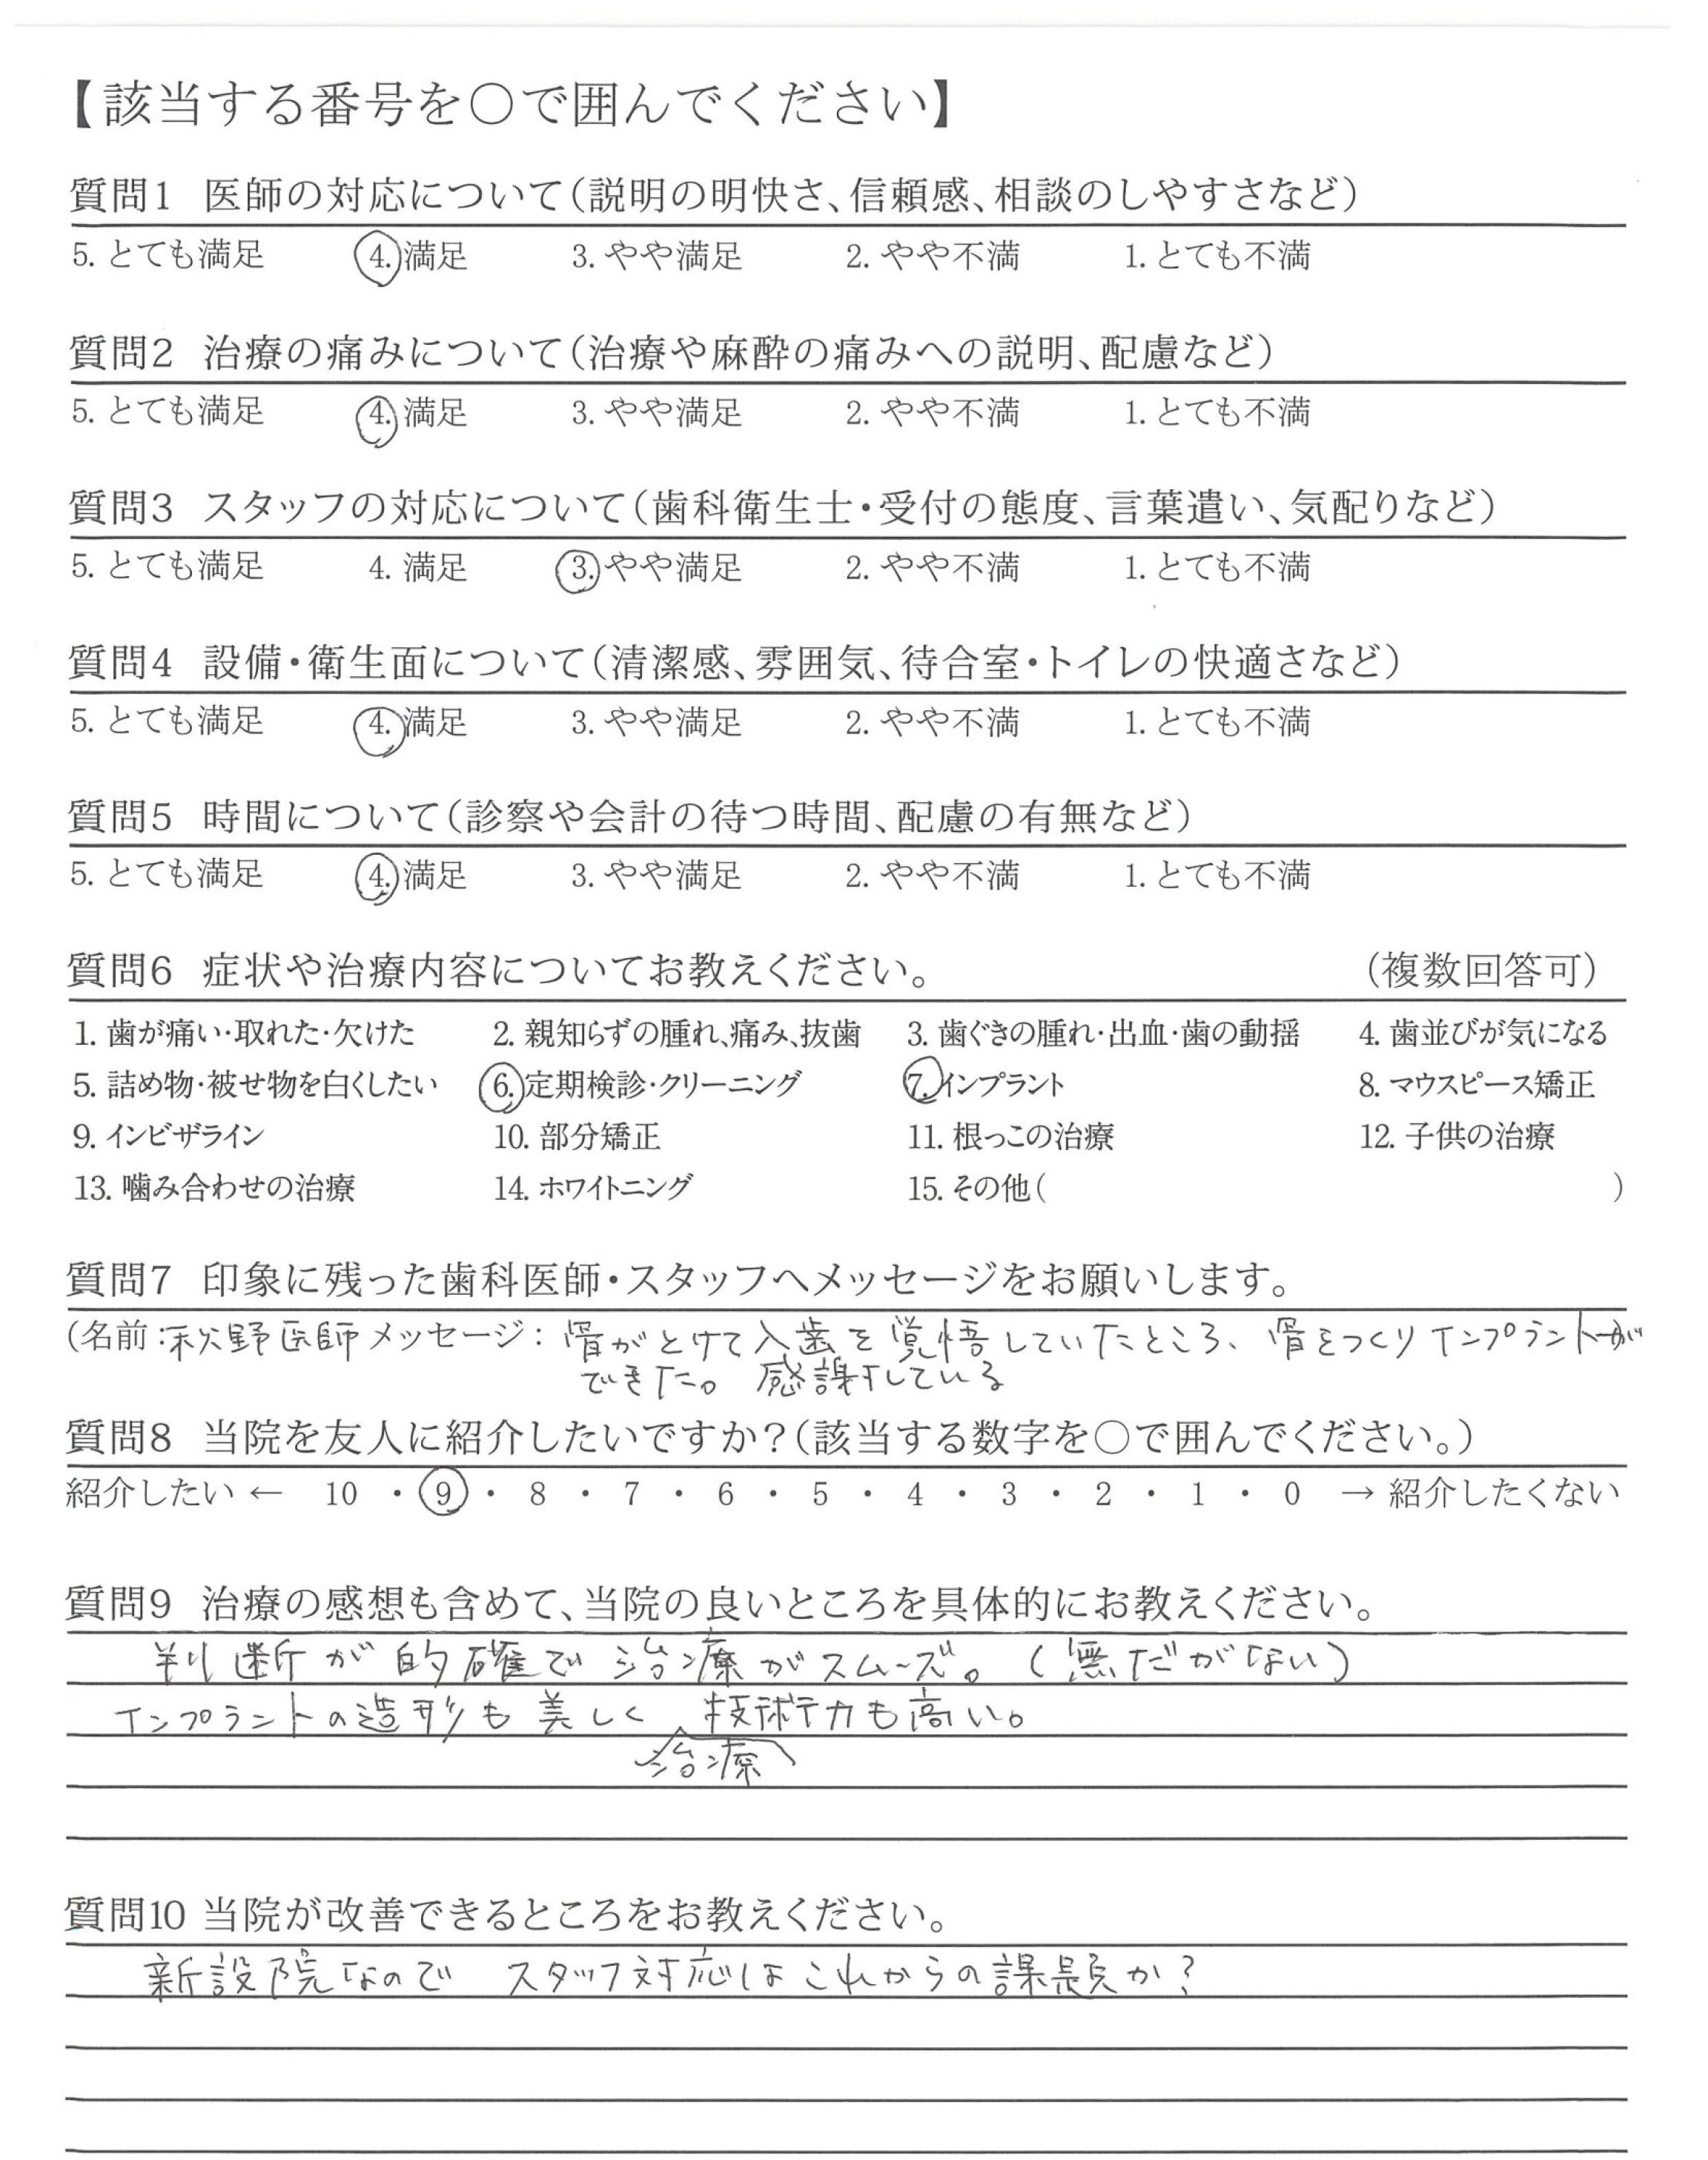 【該当する番号を〇で囲んでください】
質問1 医師の対応について(説明の明快さ、信頼感、相談のしやすさなど)
5. とても満足 4. 満足 3. やや満足 2. やや不満 1. とても不満
質問2 治療の痛みについて(治療や麻酔の痛みへの説明、配慮など)
5. とても満足 4. 満足 3. やや満足 2. やや不満 1. とても不満
質問3 スタッフの対応について(歯科衛生士・受付の態度、言葉遣い、気配りなど)
5. とても満足 4. 満足 3. やや満足 2. やや不満 1. とても不満
質問4 設備・衛生面について(清潔感、雰囲気、待合室・トイレの快適さなど)
5. とても満足 4. 満足 3. やや満足 2. やや不満 1. とても不満
質問5 時間について(診察や会計の待つ時間、配慮の有無など)
5. とても満足 4. 満足 3. やや満足 2. やや不満 1. とても不満
質問6 症状や治療内容についてお教えください。 (複数回答可)
1. 歯が痛い・取れた・欠けた 2. 親知らずの腫れ、痛み、抜歯 3. 歯ぐきの腫れ・出血・歯の動揺 4. 歯並びが気になる
5. 詰め物・被せ物を白くしたい 6. 定期検診・クリーニング 7. インプラント 8. マウスピース矯正
9. インビザライン 10. 部分矯正 11. 根っこの治療 12. 子供の治療
13. 噛み合わせの治療 14. ホワイトニング 15. その他( )
質問7 印象に残った歯科医師・スタッフへメッセージをお願いします。
(名前:秋野医師 メッセージ: 骨がとけて入歯を覚悟していたところ、骨をつくりインプラントが
できた。感謝している
質問8 当院を友人に紹介したいですか?(該当する数字を〇で囲んでください。)
紹介したい ← 10 ・ 9 ・ 8 ・ 7 ・ 6 ・ 5 ・ 4 ・ 3 ・ 2 ・ 1 ・ 0 → 紹介したくない
質問9 治療の感想も含めて、当院の良いところを具体的にお教えください。
判断が的確で治療がスムーズ。(無だがない)
インプラントの造形も美しく 技術力も高い。
治療
質問10 当院が改善できるところをお教えください。
新設院なので スタッフ対応はこれからの課題か?